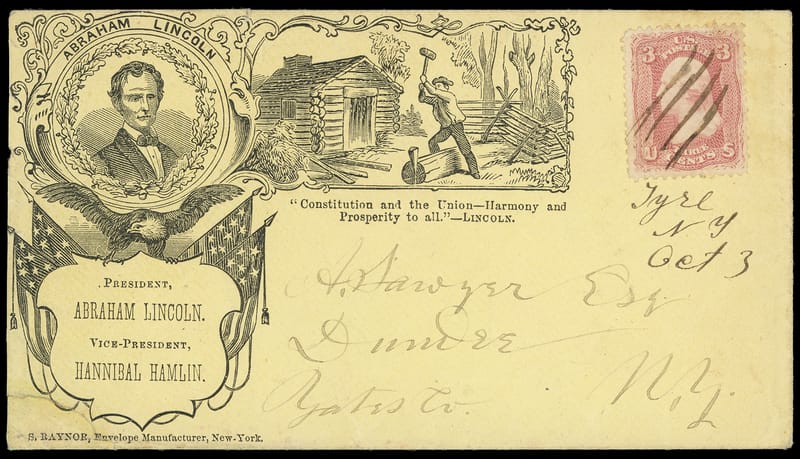 ABRAHAM LINCOLN
"Constitution and the Union—Harmony and
Prosperity to all."—LINCOLN.
PRESIDENT,
ABRAHAM LINCOLN.
VICE-PRESIDENT,
HANNIBAL HAMLIN.
S. RAYNOR, Envelope Manufacturer, New-York.
3 U.S. 3
POSTAGE
U THREE S
CENTS
Tyre
N Y
Oct 3
A. Sawyer Esq
Dundee
Yates Co. N.Y.